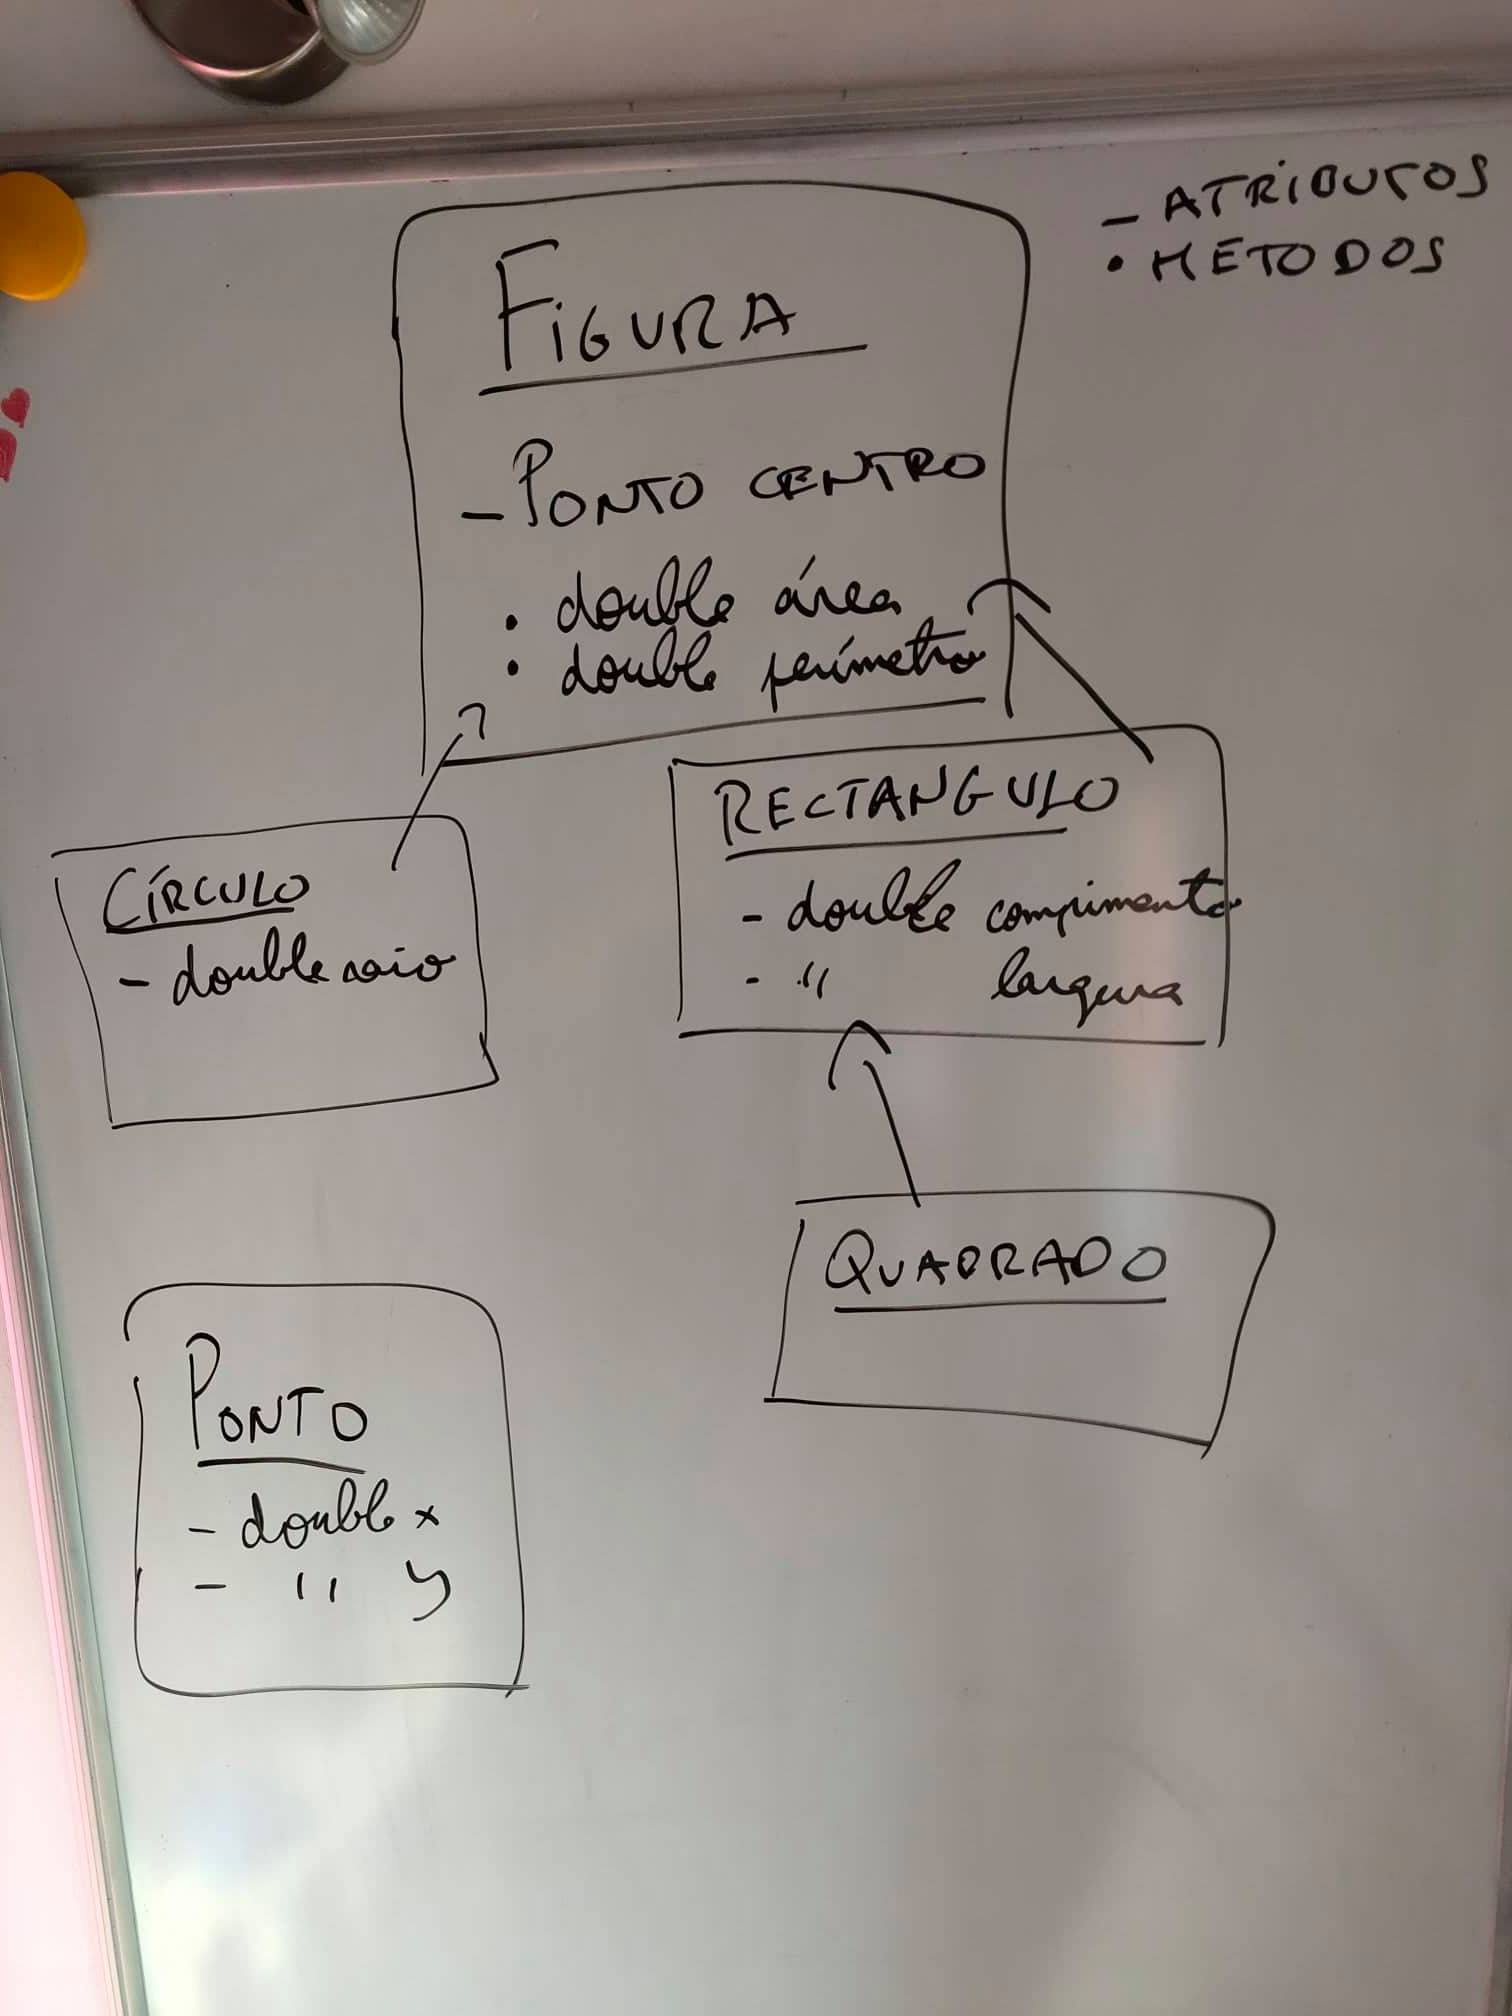 - ATRIBUTOS
• METODOS
FIGURA
- PONTO CENTRO
• double área
• double perímetro
CÍRCULO
- double raio
RECTANGULO
- double comprimento
- " largura
QUADRADO
PONTO
- double x
- " y